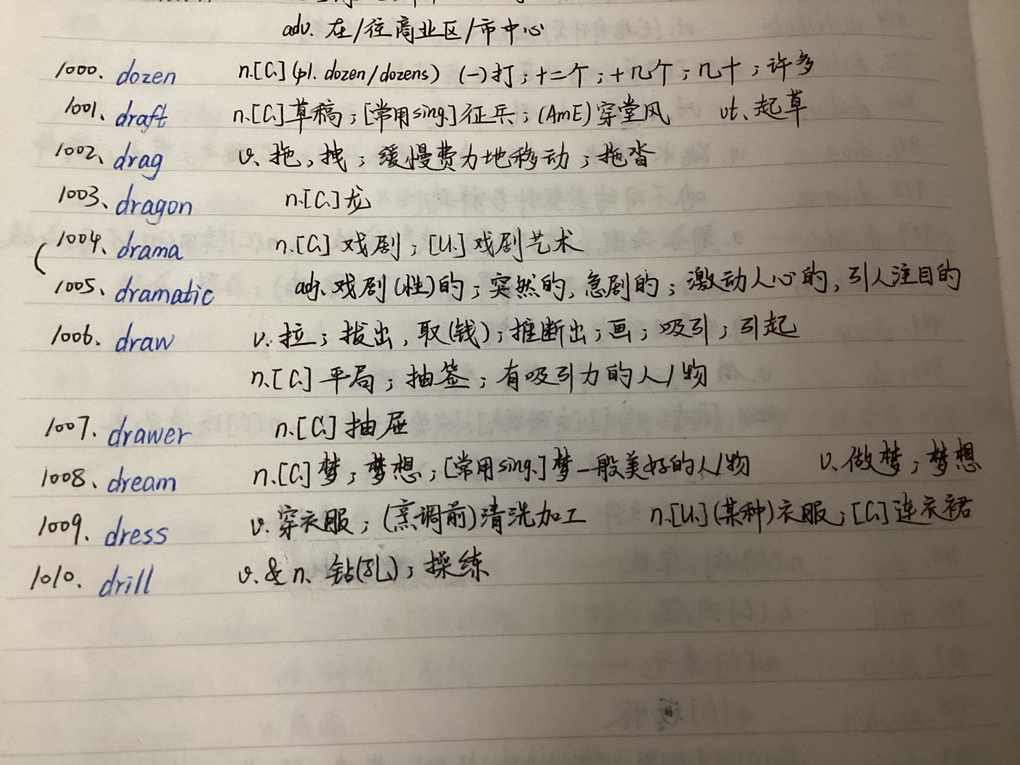 adv. 在/往商业区/市中心
1000. dozen n.[C.] (pl. dozen/dozens) (一)打；十二个；十几个；几十；许多
1001. draft n.[C.]草稿；[常用sing.]征兵；(AmE)穿堂风 vt. 起草
1002. drag v. 拖，拽；缓慢费力地移动；拖沓
1003. dragon n.[C.]龙
1004. drama n.[C.] 戏剧；[U.] 戏剧艺术
1005. dramatic adj. 戏剧(性)的；突然的，急剧的；激动人心的，引人注目的
1006. draw v. 拉；拔出，取(钱)；推断出；画；吸引；引起
n.[C.] 平局；抽签；有吸引力的人/物
1007. drawer n.[C.] 抽屉
1008. dream n.[C.] 梦；梦想；[常用sing.]梦一般美好的人/物 v. 做梦；梦想
1009. dress v. 穿衣服；(烹调前)清洗加工 n.[U.] (某种)衣服；[C.]连衣裙
1010. drill v. & n. 钻(孔)；操练